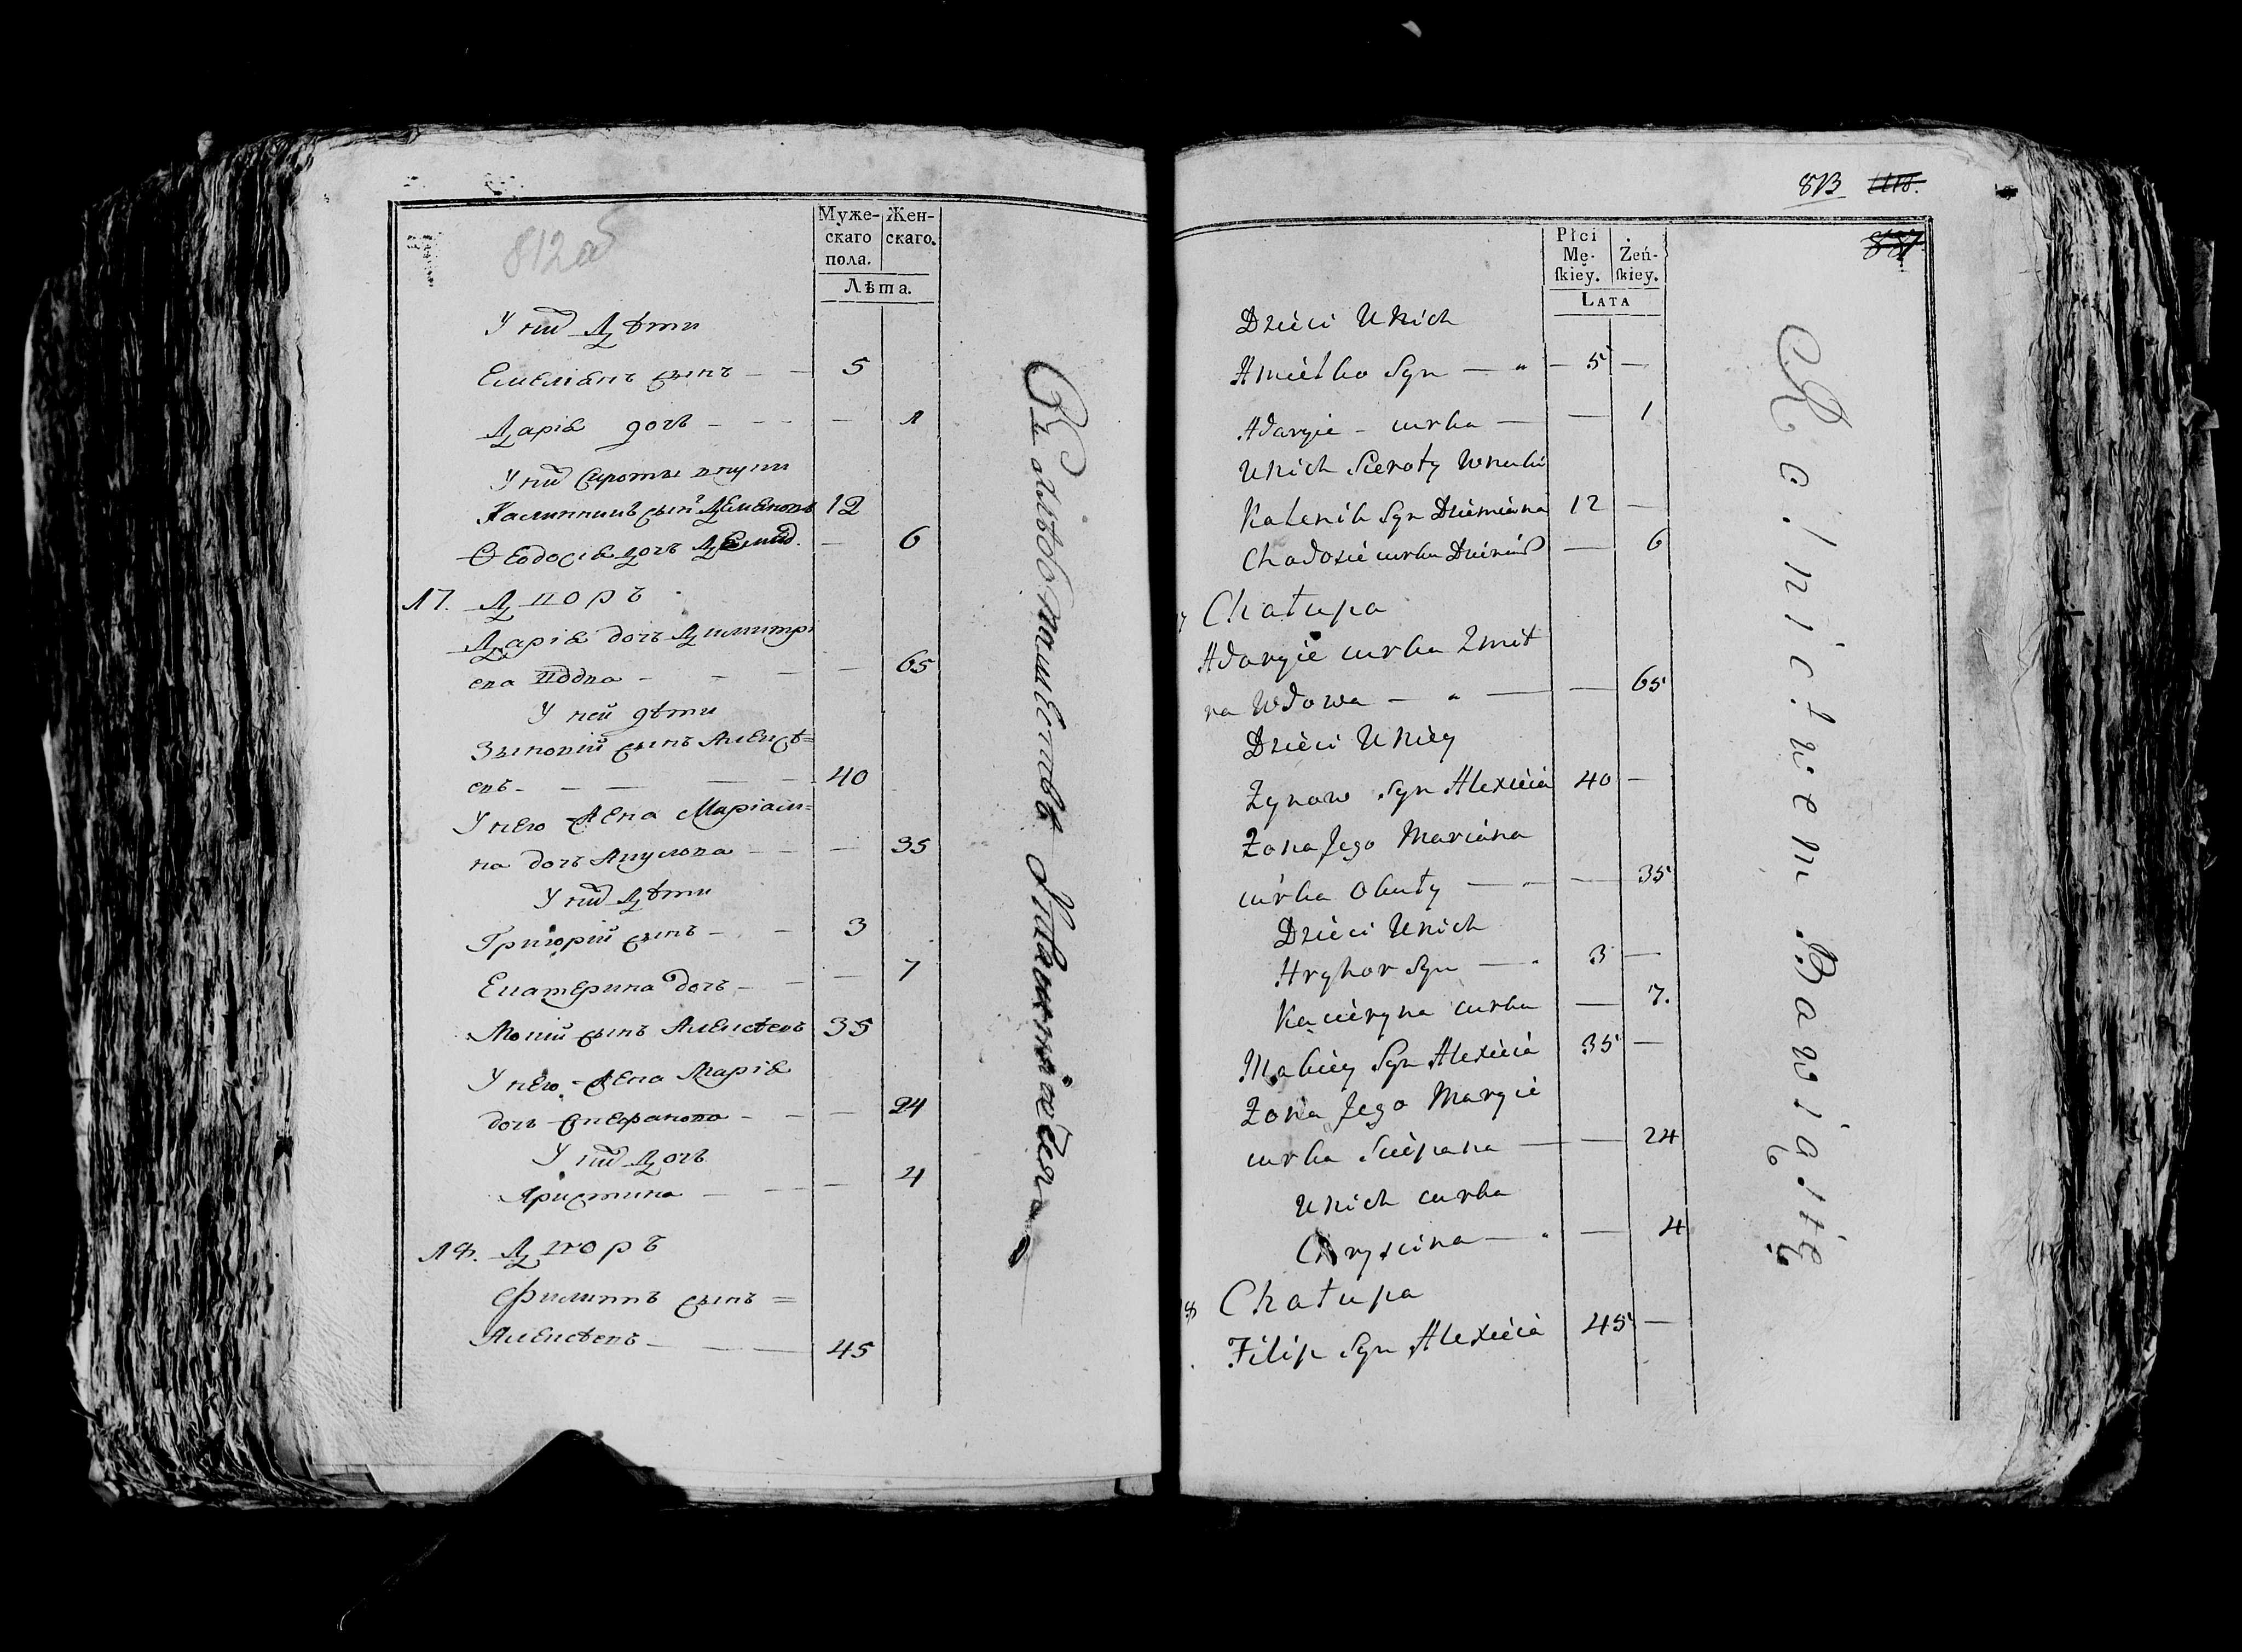 812 об
Муже-
скаго
пола.
Жен-
скаго.
Лѣта.
У них Дѣти
Емеліанъ сынъ — — 5
Дарія дочь — — — 1
У них Сироты внуки
Калинникъ сынъ Деменовъ 12
Ѳеодосія дочь Демид. — 6
17. Дворъ
Дарія дочь Димитрі
ева вдова — — — — 65
У ней дѣти
Зыновій сынъ Алексѣ=
евъ — — — — 40
У него Жена Маріан=
на дочь — — — 35
У них Дѣти
Григорій сынъ — — 3
Екатерина дочь — — — 7
Мокій сынъ Алексѣевъ 35
У него Жена Марія
дочь Стефанова — — — 24
У них Дочь
Христина — — — 4
18. Дворъ
Филиппъ сынъ =
Алексѣевъ — — — 45
813
887
Płci
Mę-
ſkiey.
Żeń-
ſkiey.
LATA
Dzieci Unich
Amielko Syn — „ — 5 —
Adaryie — curka — — 1
Unich Sieroty Wnuki
Kalenik Syn Dziemiana 12 —
Chadosie curka — 6
Chałupa
Adaryie curka Zmit
ra Wdowa — „ — — 65
Dzieci Uniey
Zynow Syn Alexieia 40 —
Zona Jego Mariana
curka Okuły — — 35
Dzieci Unich
Hryhor Syn — 3 —
Kacieryna curka — 7.
Mokiey Syn Alexieia 35 —
Zona Jego Maryie
curka Sciepana — — 24
Unich curka
Chryscina — — 4
18 Chałupa
Filip Syn Alexieia 45 —